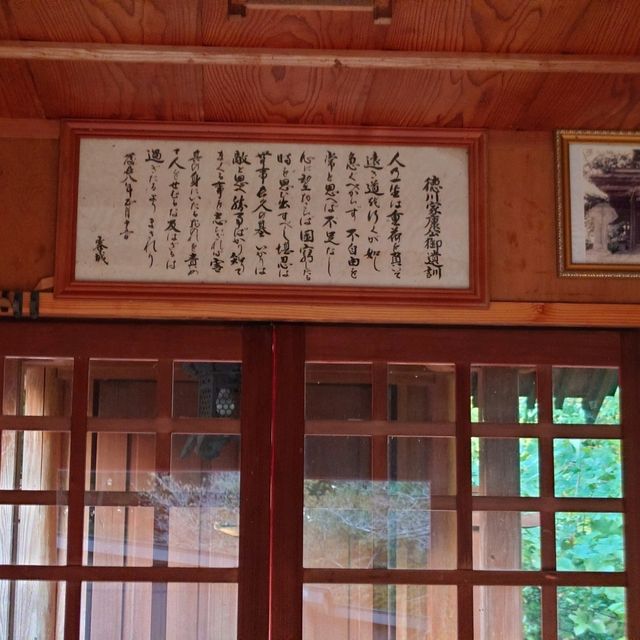 徳川家康御遺訓
人の一生は重荷を負いて
遠き道を行くが如し
急ぐべからず 不自由を
常と思へば不足なし
心に望おこらば困窮したる
時を思い出すべし堪忍は
無事長久の基 いかりは
敵と思へ勝事ばかり知りて
まくる事を知らざれば害
其の身にいたるおのれを責め
て人をせむるな及ばざるは
過ぎたるよりまされり
慶長八年正月十五日